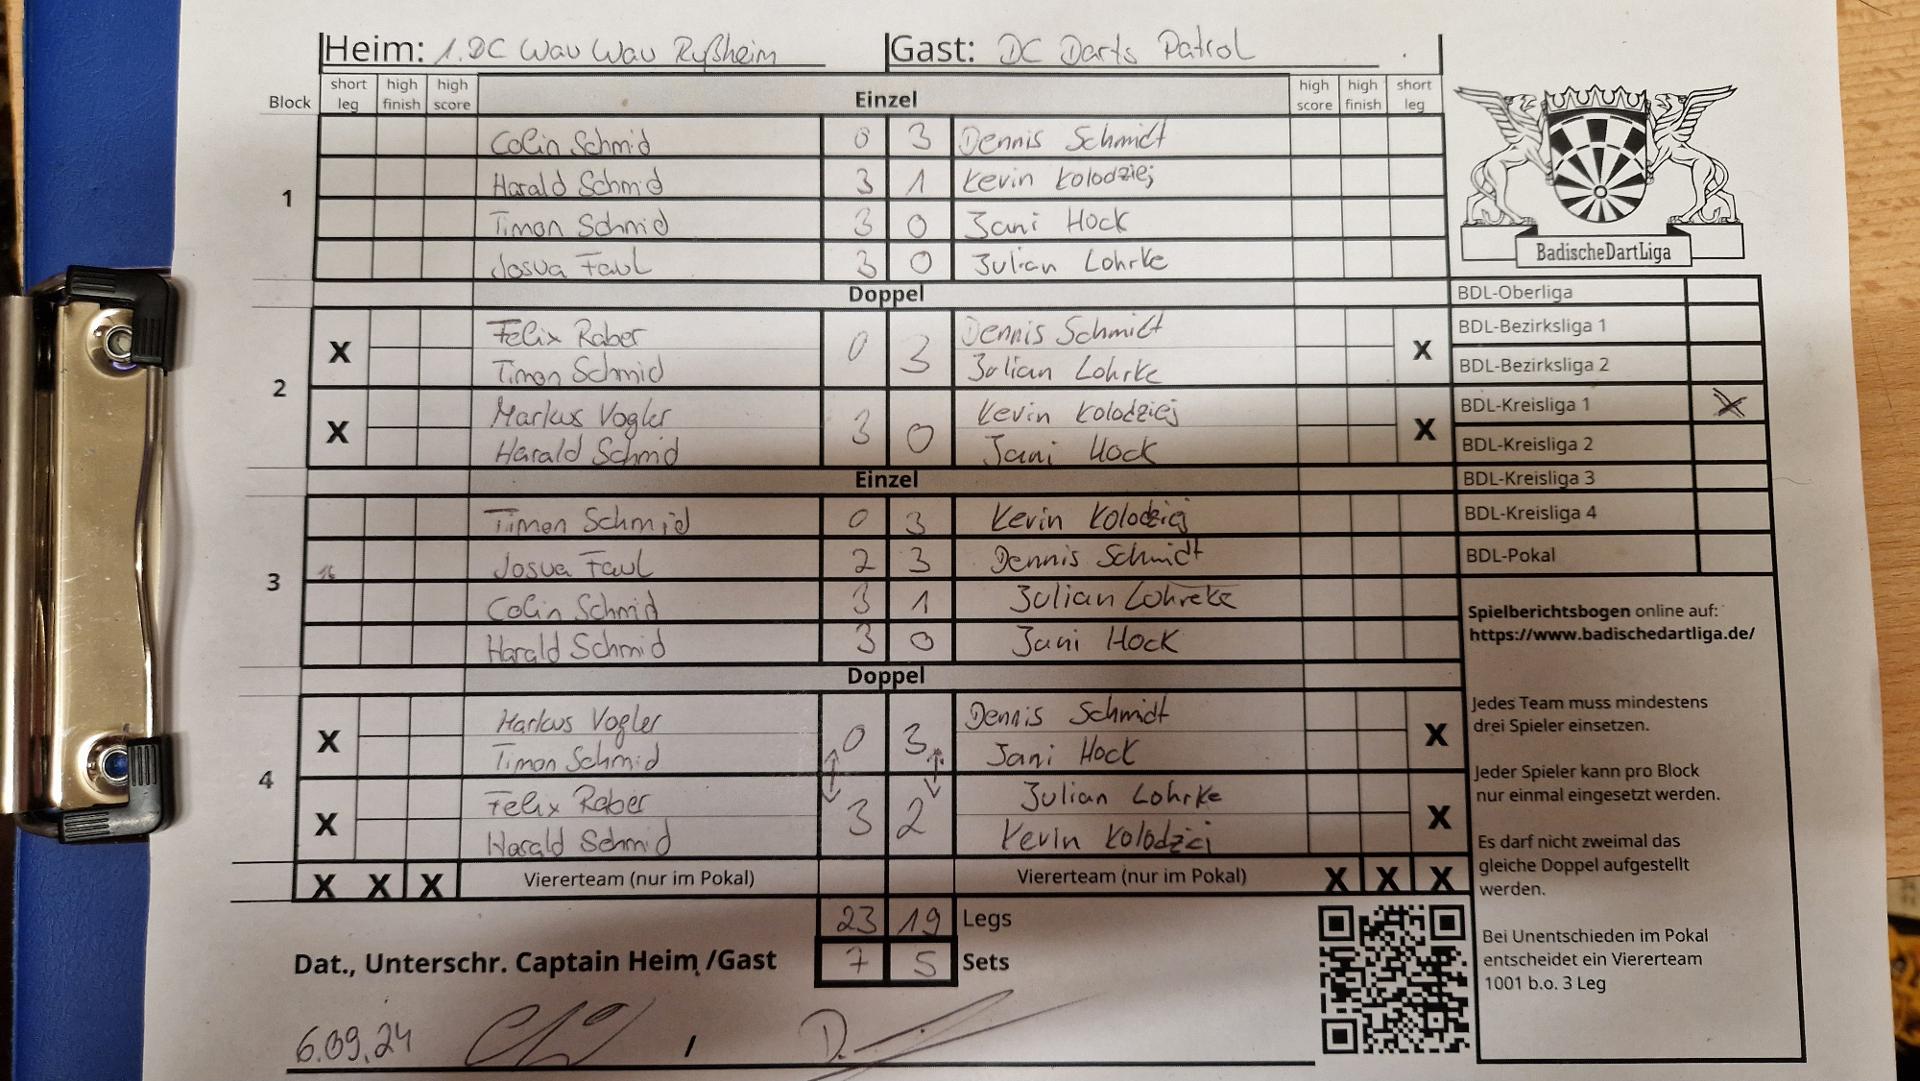 Heim: 1. DC Wau Wau Rußheim Gast: DC Darts Patrol
Block short leg high finish high score Einzel high score high finish short leg
1
Colin Schmid 0 3 Dennis Schmidt
Harald Schmid 3 1 Kevin Kolodziej
Timon Schmid 3 0 Jani Hock
Josua Faul 3 0 Julian Lohrke
Doppel
2
X Felix Raber 0 3 Dennis Schmidt X
Timon Schmid Julian Lohrke
X Markus Vogler 3 0 Kevin Kolodziej X
Harald Schmid Jani Hock
Einzel
3
Timon Schmid 0 3 Kevin Kolodziej
16 Josua Faul 2 3 Dennis Schmidt
Colin Schmid 3 1 Julian Lohreke
Harald Schmid 3 0 Jani Hock
Doppel
4
X Markus Vogler 0 3 Dennis Schmidt X
Timon Schmid Jani Hock
X Felix Raber 3 2 Julian Lohrke X
Harald Schmid Kevin Kolodziej
X X X Viererteam (nur im Pokal) Viererteam (nur im Pokal) X X X
23 19 Legs
Dat., Unterschr. Captain Heim /Gast 7 5 Sets
6.09.24 /
BadischeDartLiga
BDL-Oberliga
BDL-Bezirksliga 1
BDL-Bezirksliga 2
BDL-Kreisliga 1 X
BDL-Kreisliga 2
BDL-Kreisliga 3
BDL-Kreisliga 4
BDL-Pokal
Spielberichtsbogen online auf:
https://www.badischedartliga.de/
Jedes Team muss mindestens
drei Spieler einsetzen.
Jeder Spieler kann pro Block
nur einmal eingesetzt werden.
Es darf nicht zweimal das
gleiche Doppel aufgestellt
werden.
Bei Unentschieden im Pokal
entscheidet ein Viererteam
1001 b.o. 3 Leg